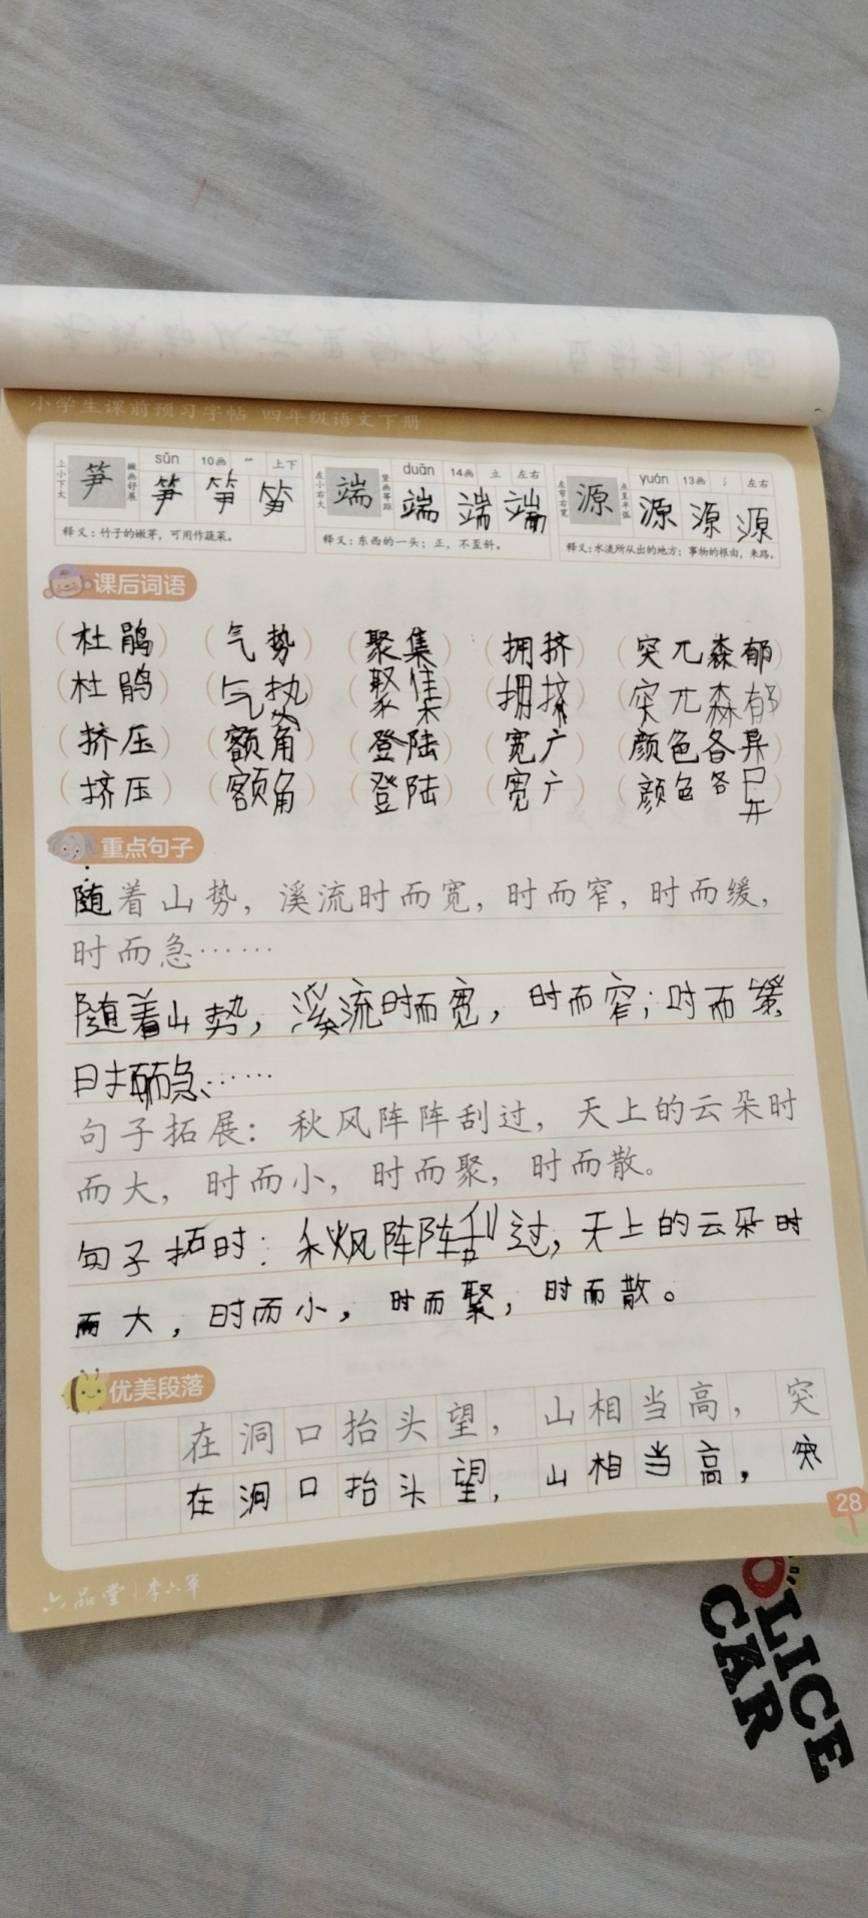 小学生课前预习字帖 四年级语文下册
上小下大 笋 撇画舒展 sǔn 10画 ⺮ 上下
笋 笋 笋
释义：竹子的嫩芽，可用作蔬菜。
左小右大 端 竖画等距 duān 14画 立 左右
端 端 端
释义：东西的一头；正，不歪斜。
左窄右宽 源 点呈半弧 yuán 13画 氵 左右
源 源 源
释义：水流所从出的地方；事物的根由，来路。
课后词语
（杜鹃）（气势）（聚集）（拥挤）（突兀森郁）
（杜鹃）（气势）（聚集）（拥挤）（突兀森郁）
（挤压）（额角）（登陆）（宽广）（颜色各异）
（挤压）（额角）（登陆）（宽广）（颜色各异）
重点句子
随着山势，溪流时而宽，时而窄，时而缓，
时而急……
随着山势，溪流时而宽，时而窄；时而缓
时而急、……
句子拓展：秋风阵阵刮过，天上的云朵时
而大，时而小，时而聚，时而散。
句子拓时：秋风阵阵刮过，天上的云朵时
而大，时而小，时而聚，时而散。
优美段落
在洞口抬头望，山相当高，突
在洞口抬头望，山相当高，突
28
六品堂 | 李六军
OLICE
CAR